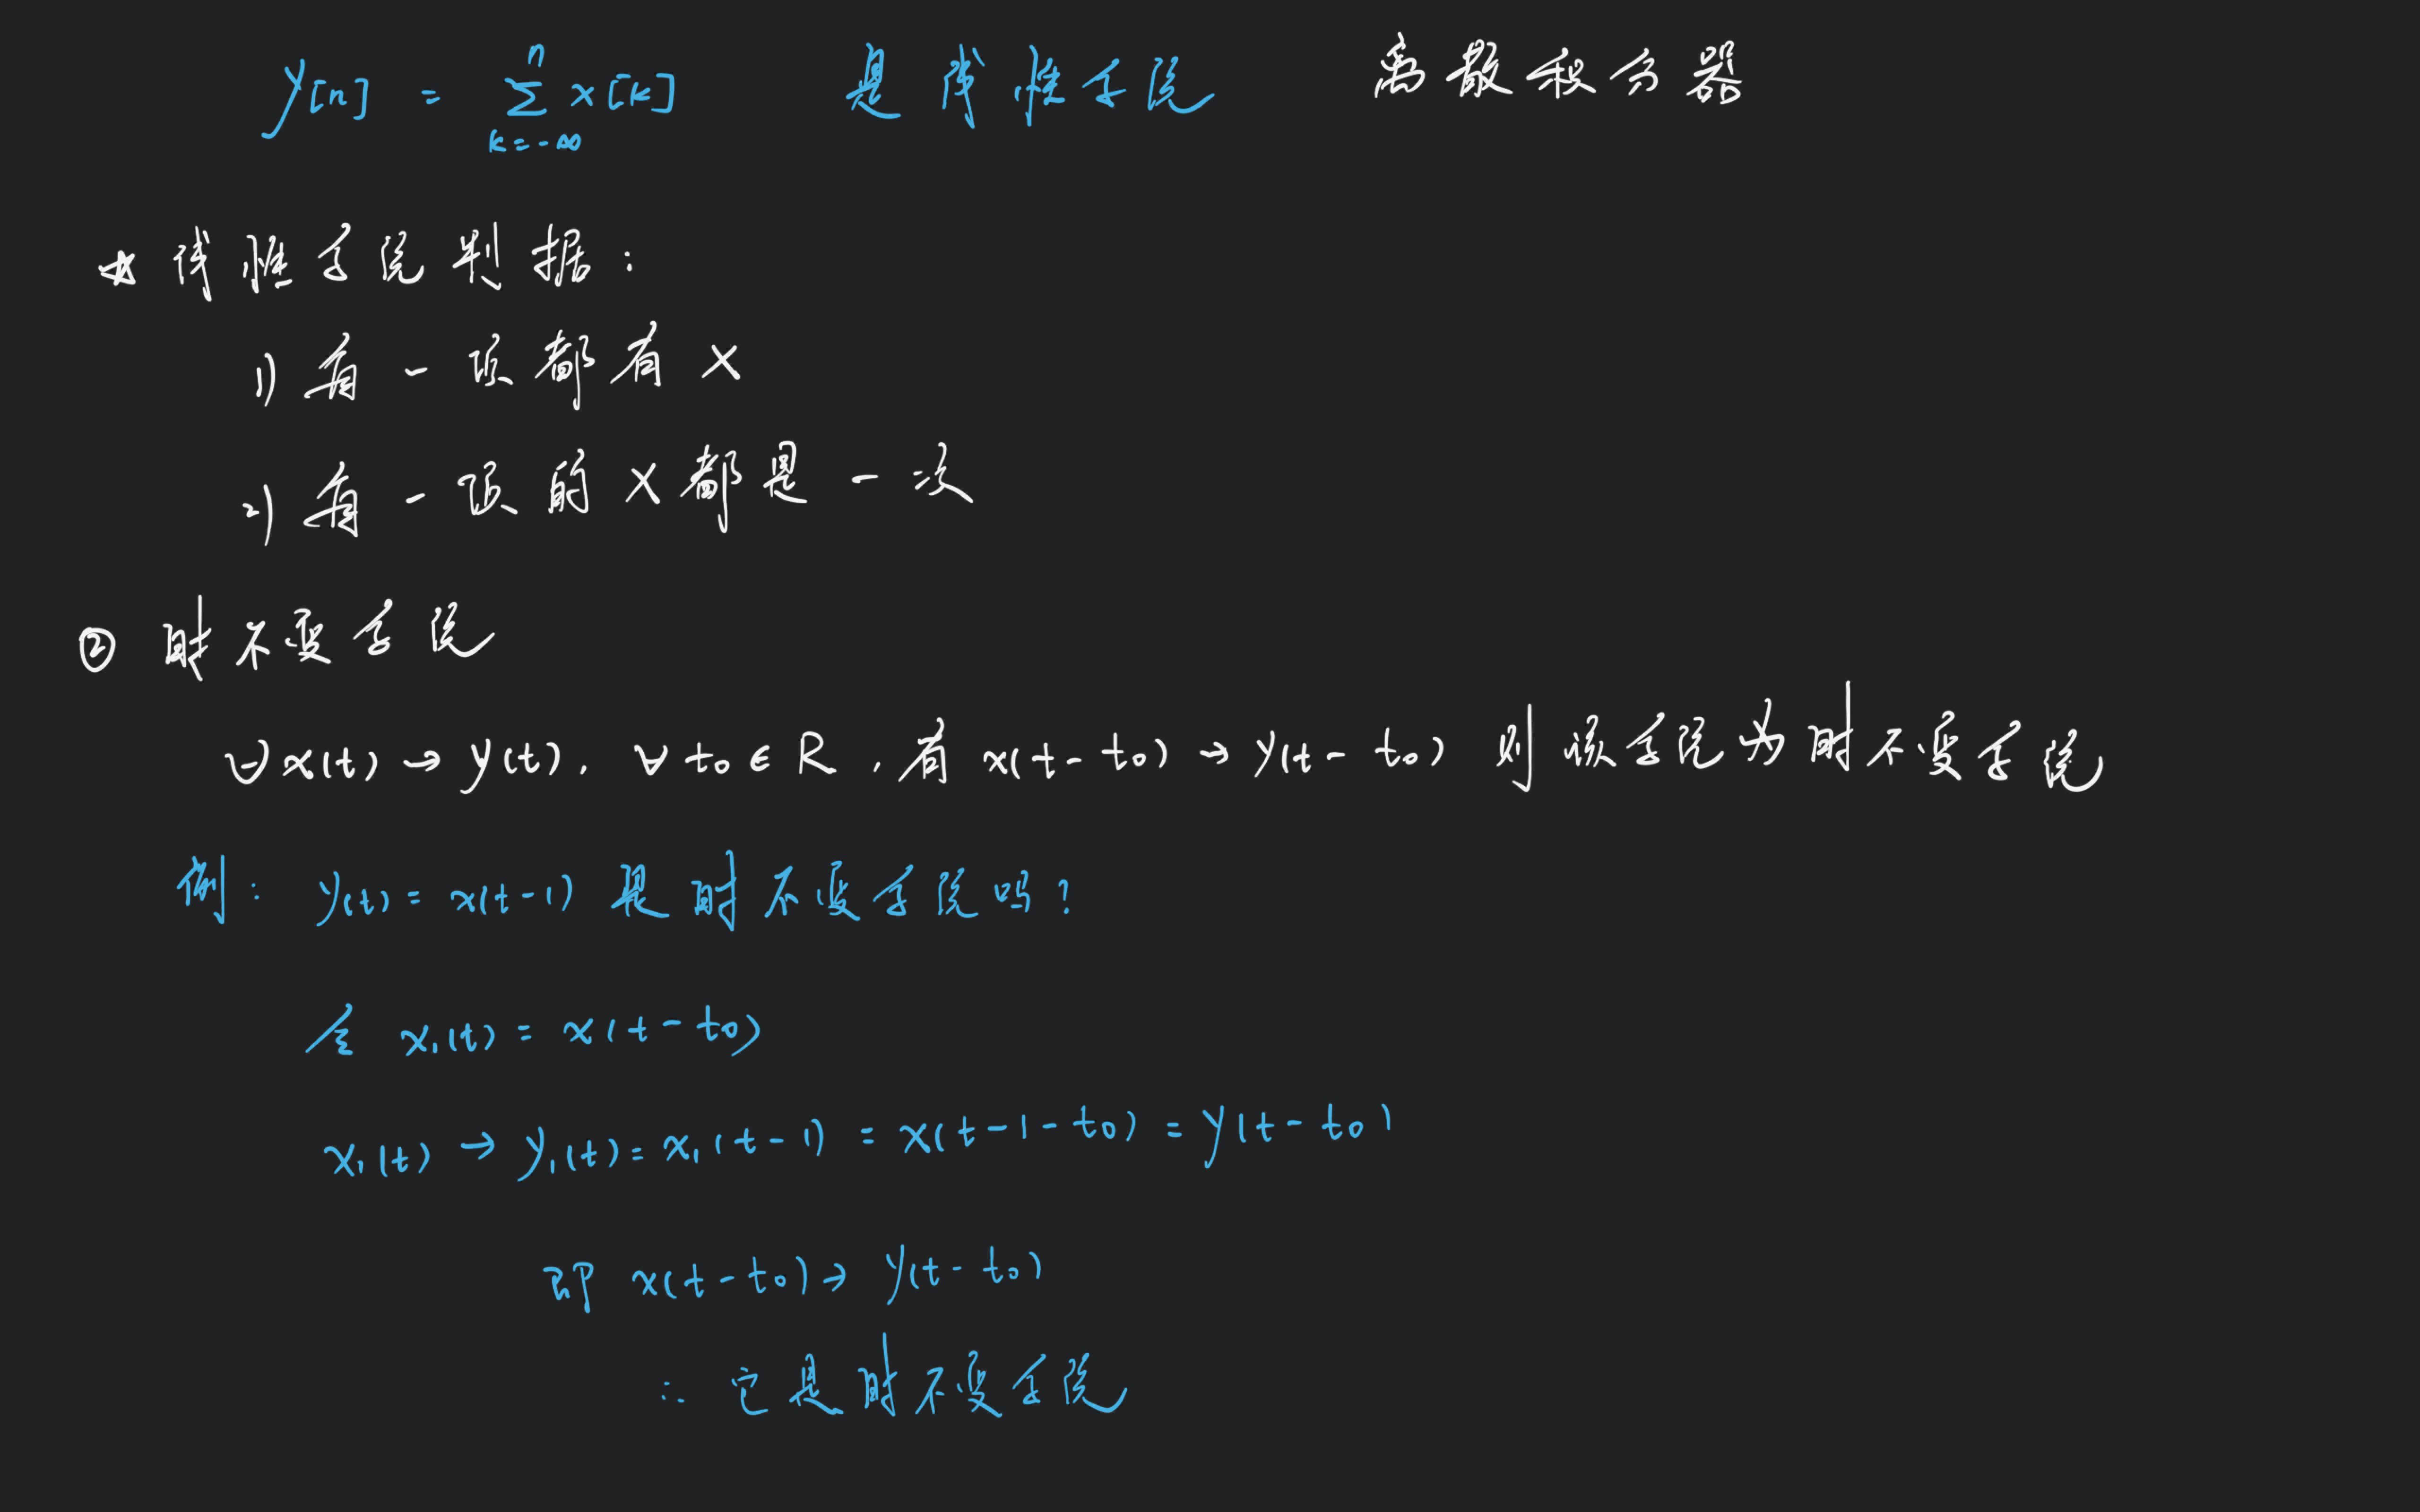 y[n] = ∑_{k=-∞}^{n} x[k] 是线性系统 离散积分器
☆ 线性系统判据:
1) 每一项都有 x
2) 每一项的 x 都是一次
② 时不变系统
∀ x(t) → y(t), ∀ t₀ ∈ R, 有 x(t - t₀) → y(t - t₀) 则该系统为时不变系统
例: y(t) = x(t-1) 是时不变系统吗?
令 x₁(t) = x(t - t₀)
x₁(t) → y₁(t) = x₁(t-1) = x(t-1-t₀) = y(t-t₀)
即 x(t-t₀) → y(t-t₀)
∴ 它是时不变系统